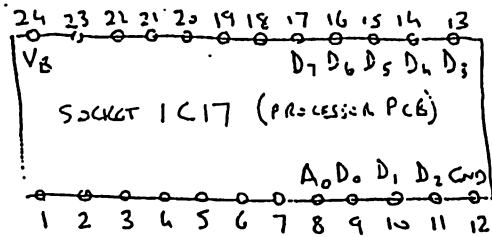 24 23 22 21 20 19 18 17 16 15 14 13
V_B D7 D6 D5 D4 D3
SOCKET IC17 (PROCESSOR PCB)
A0 D0 D1 D2 GND
1 2 3 4 5 6 7 8 9 10 11 12